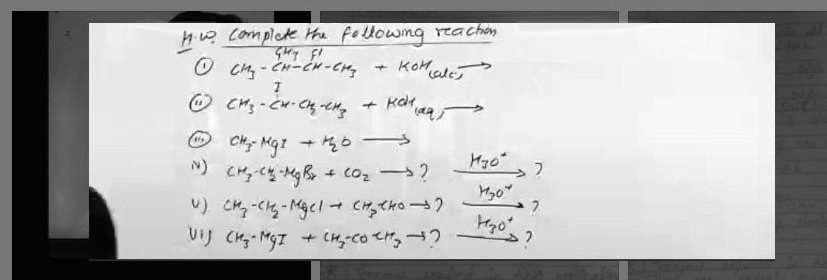 H.W. Complete the following reaction
CH3 Cl
(i) CH3-CH-CH-CH3 + KOH(alc) →
I
(ii) CH3-CH-CH2-CH3 + KOH(aq) →
(iii) CH3-MgI + H2O →
iv) CH3-CH2-MgBr + CO2 → ? H3O+ → ?
v) CH3-CH2-MgCl + CH3CHO → ? H3O+ → ?
vi) CH3-MgI + CH3-CO-CH3 → ? H3O+ → ?